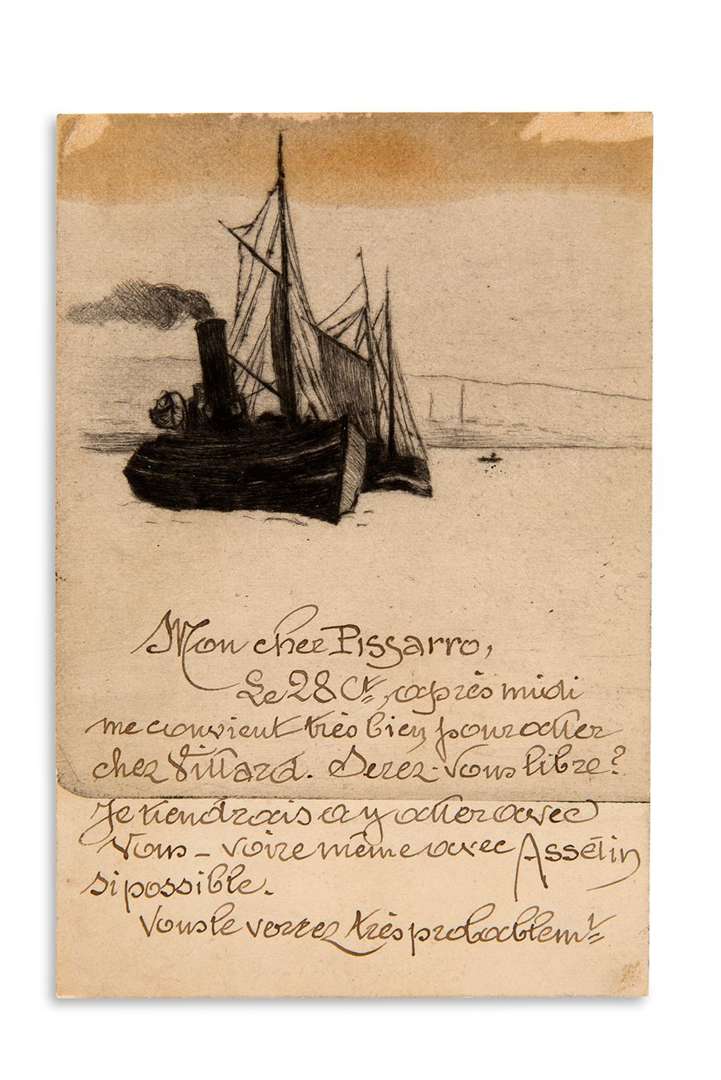 Mon cher Pissarro,
Le 28 Ct, après midi
me convient très bien pour aller
chez Villard. Serez-vous libre?
Je tiendrais a y aller avec
Vous - voire même avec Assélin
si possible.
Vous le verrez très probablemt